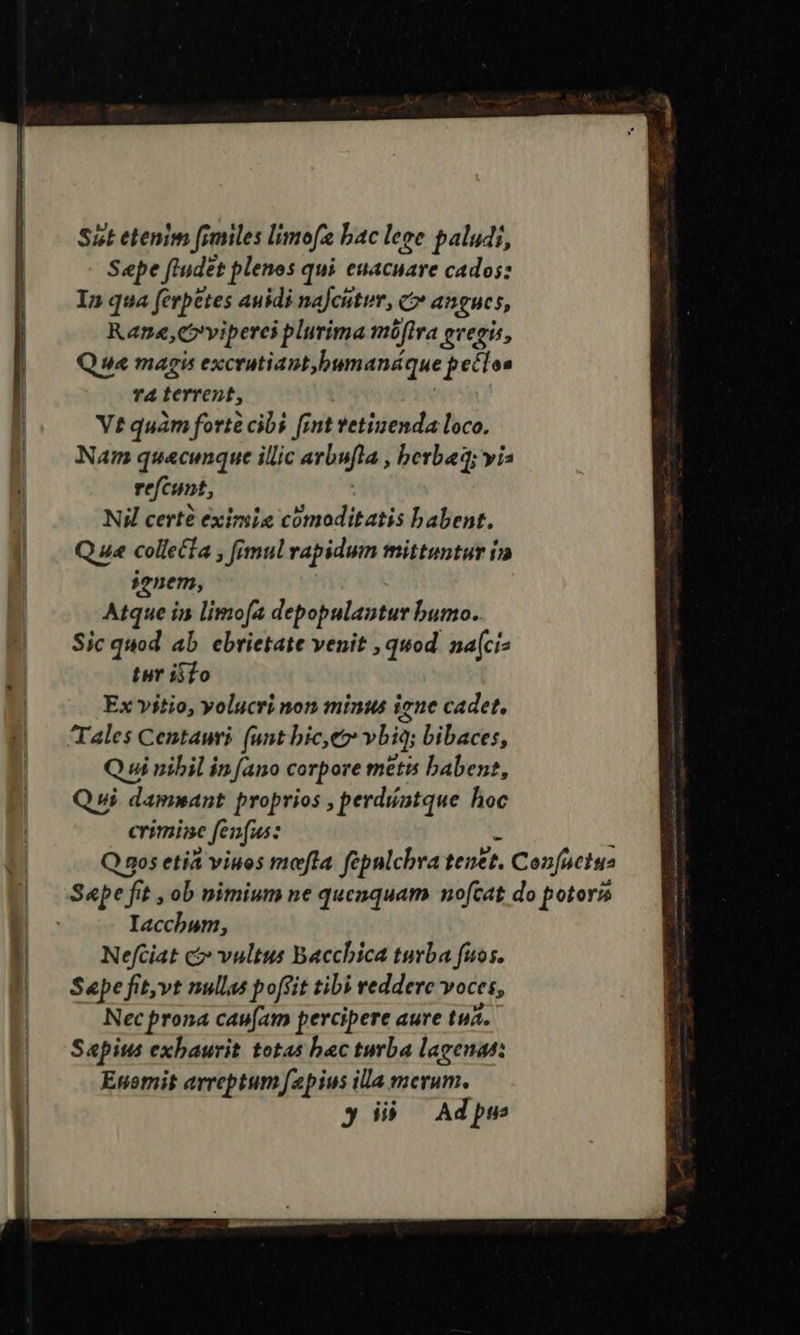 Sūt etenim ſimiles limoſæ hac lege paludi,
Sæpe ſtudēt plenos qui euacuare cados:
In qua ſerpētes auidi naſcūtur, & angues,
Ranæ, & viperei plurima mōſtra gregis,
Quæ magis excrutiant, humanáque pecto=
ra terrent,
Vt quàm fortè cibi ſint retinenda loco.
Nam quæcunque illic arbuſta, herbæq; vi=
reſcunt,
Nil certè eximiæ cōmoditatis habent.
Quæ collecta, ſimul rapidum mittuntur in
ignem,
Atque in limoſa depopulantur humo.
Sic quod ab ebrietate venit, quod naſci=
tur iſto
Ex vitio, volucri non minus igne cadet.
Tales Centauri ſunt hic, & vbiq; bibaces,
Qui nihil in ſano corpore mētis habent,
Qui damnant proprios, perdúntque hoc
crimine ſenſus:
Quos etiā viuos mœſta ſepulchra tenēt.
Conſuetus
Sæpe fit, ob nimium ne quenquam noſcat
do potorū
Iacchum,
Neſciat & vultus Bacchica turba ſuos.
Sæpe fit, vt nullas poſsit tibi reddere voces,
Nec prona cauſam percipere aure tuā.
Sæpius exhaurit totas hæc turba lagenas:
Euomit arreptum ſæpius illa merum.
y iii Ad pu=